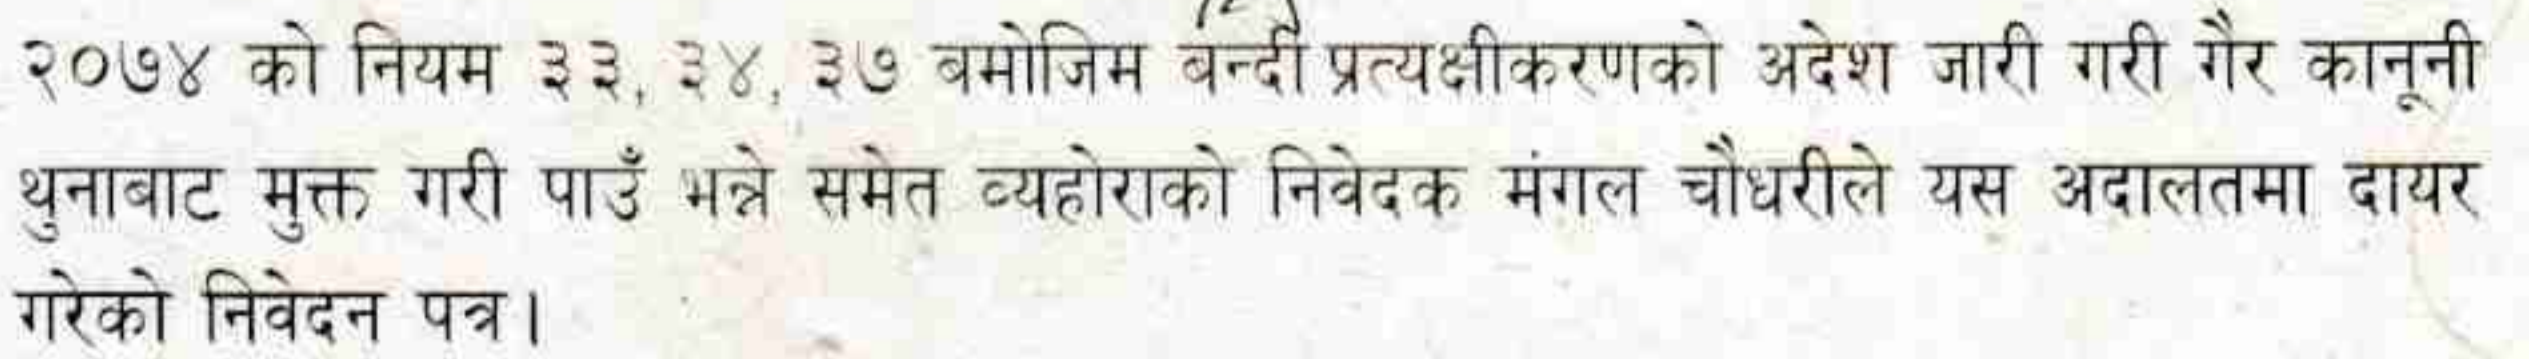 २०७४ को नियम ३३, ३४, ३७ बमोजिम बन्दी प्रत्यक्षीकरणको अदेश जारी गरी गैर कानूनी
थुनाबाट मुक्त गरी पाउँ भन्ने समेत व्यहोराको निवेदक मंगल चौधरीले यस अदालतमा दायर
गरेको निवेदन पत्र।